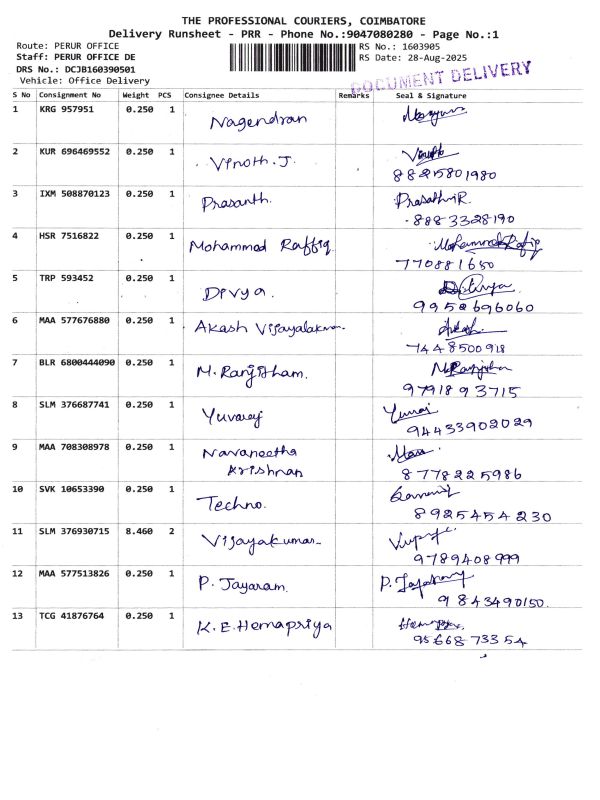 THE PROFESSIONAL COURIERS, COIMBATORE
Delivery Runsheet - PRR - Phone No.:9047080280 - Page No.:1
Route: PERUR OFFICE RS No.: 1603905
Staff: PERUR OFFICE DE RS Date: 28-Aug-2025
DRS No.: DCJB160390501
Vehicle: Office Delivery
DOCUMENT DELIVERY
S No Consignment No Weight PCS Consignee Details Remarks Seal & Signature
1 KRG 957951 0.250 1 Nagendran
2 KUR 696469552 0.250 1 Vinoth. J. Vinoth
8825801980
3 IXM 508870123 0.250 1 Prasanth. Prasathn R.
8883328190
4 HSR 7516822 0.250 1 Mohammad Raffiq Mohammed Rafiq
770881650
5 TRP 593452 0.250 1 Divya. Divya
9952696060
6 MAA 577676880 0.250 1 Akash Vijayalakm Akash
7448500918
7 BLR 6800444090 0.250 1 M. Ranjitham. M. Ranjitham
9791893715
8 SLM 376687741 0.250 1 Yuvaraj Yuvraj
94433902029
9 MAA 708308978 0.250 1 Navaneetha
Krishnan
8778225986
10 SVK 10653390 0.250 1 Techno.
8925454230
11 SLM 376930715 8.460 2 Vijayakumar
9789408999
12 MAA 577513826 0.250 1 P. Jayaram. P. Jayaram
9843490150.
13 TCG 41876764 0.250 1 K. E. Hemapriya
9566873354